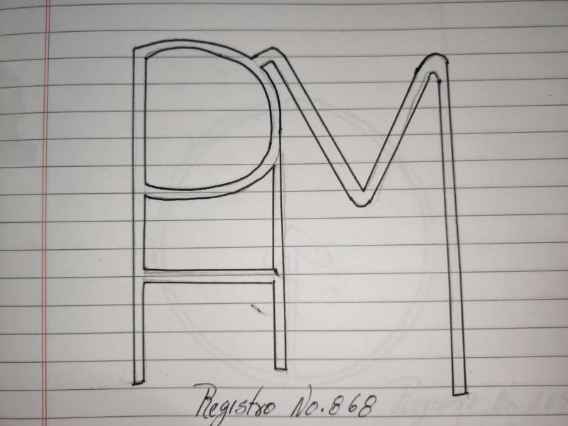 PAM
Registro No. 868